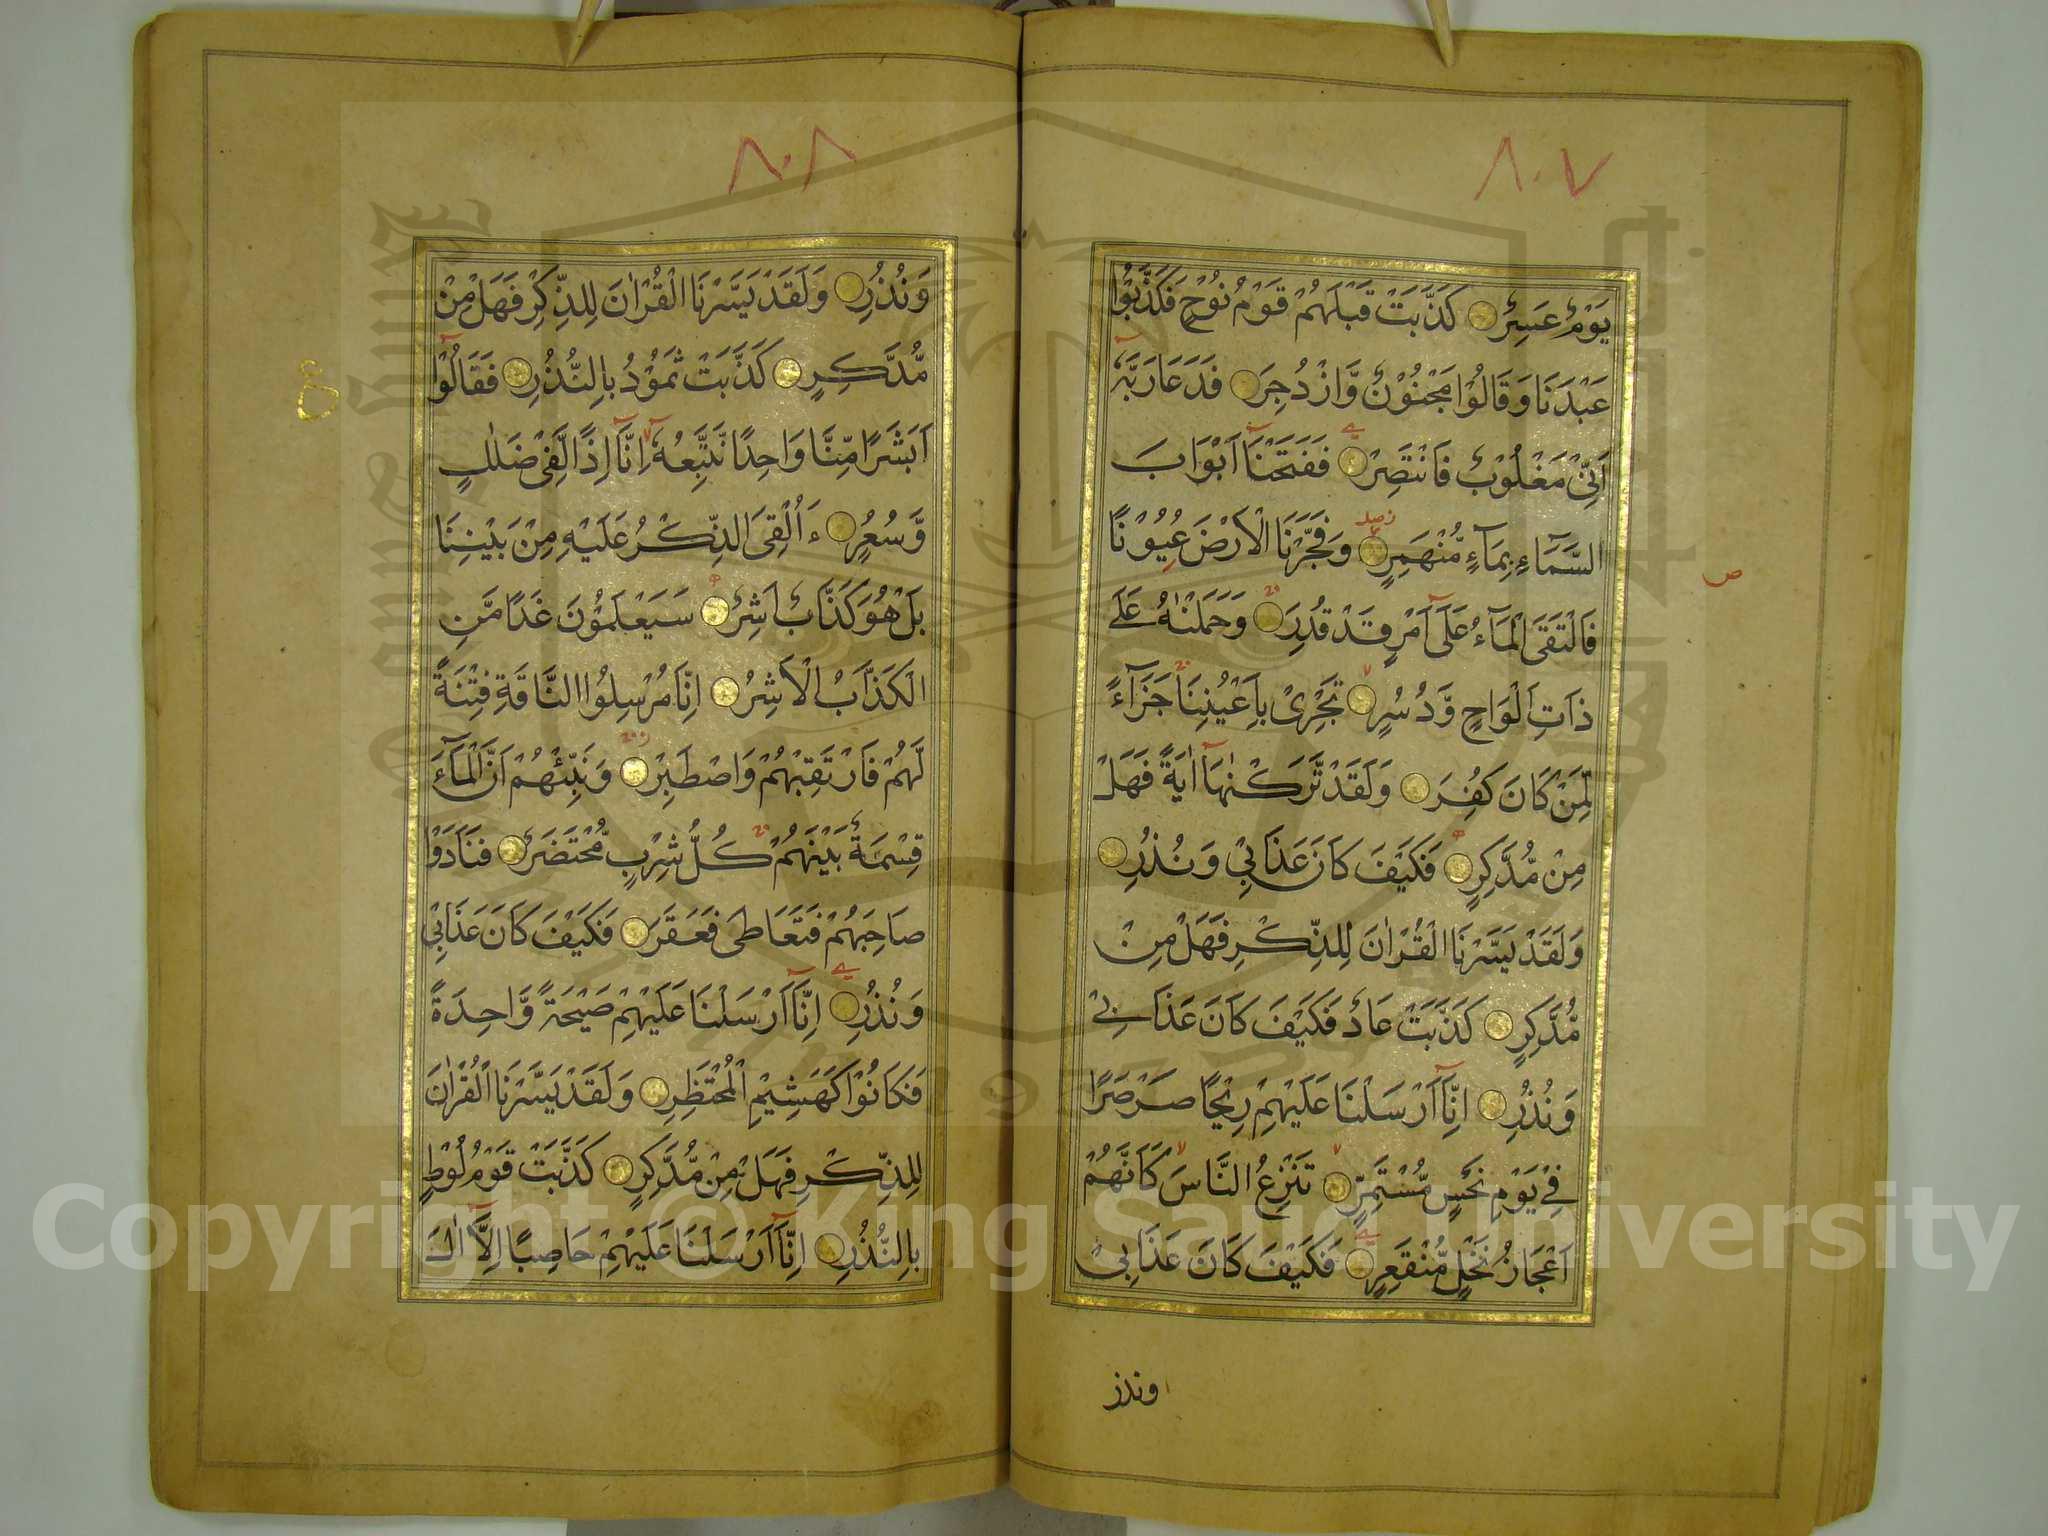 ٨٠٧
يَوْمٌ عَسِرٌ كَذَّبَتْ قَبْلَهُمْ قَوْمُ نُوْحٍ فَكَذَّبُوْا
عَبْدَنَا وَقَالُوْا مَجْنُوْنٌ وَّازْدُجِرَ فَدَعَا رَبَّهٗٓ
اَنِّيْ مَغْلُوْبٌ فَانْتَصِرْ فَفَتَحْنَآ اَبْوَابَ
السَّمَآءِ بِمَآءٍ مُّنْهَمِرٍ وَفَجَّرْنَا الْاَرْضَ عُيُوْنًا
فَالْتَقَى الْمَآءُ عَلَىٓ اَمْرٍ قَدْ قُدِرَ وَحَمَلْنٰهُ عَلٰى
ذَاتِ اَلْوَاحٍ وَّدُسُرٍ تَجْرِيْ بِاَعْيُنِنَا جَزَآءً
لِّمَنْ كَانَ كُفِرَ وَلَقَدْ تَّرَكْنٰهَآ اٰيَةً فَهَلْ
مِنْ مُّدَّكِرٍ فَكَيْفَ كَانَ عَذَابِيْ وَنُذُرِ
وَلَقَدْ يَسَّرْنَا الْقُرْاٰنَ لِلذِّكْرِ فَهَلْ مِنْ
مُّدَّكِرٍ كَذَّبَتْ عَادٌ فَكَيْفَ كَانَ عَذَابِيْ
وَنُذُرِ اِنَّآ اَرْسَلْنَا عَلَيْهِمْ رِيْحًا صَرْصَرًا
فِيْ يَوْمِ نَحْسٍ مُّسْتَمِرٍّ تَنْزِعُ النَّاسَ كَاَنَّهُمْ
اَعْجَازُ نَخْلٍ مُّنْقَعِرٍ فَكَيْفَ كَانَ عَذَابِيْ
ونذر
٨٠٨
وَنُذُرِ وَلَقَدْ يَسَّرْنَا الْقُرْاٰنَ لِلذِّكْرِ فَهَلْ مِنْ
مُّدَّكِرٍ كَذَّبَتْ ثَمُوْدُ بِالنُّذُرِ فَقَالُوْٓا
اَبَشَرًا مِّنَّا وَاحِدًا نَّتَّبِعُهٗٓ اِنَّآ اِذًا لَّفِيْ ضَلٰلٍ
وَّسُعُرٍ ءَاُلْقِيَ الذِّكْرُ عَلَيْهِ مِنْ بَيْنِنَا
بَلْ هُوَ كَذَّابٌ اَشِرٌ سَيَعْلَمُوْنَ غَدًا مَّنِ
الْكَذَّابُ الْاَشِرُ اِنَّا مُرْسِلُوا النَّاقَةِ فِتْنَةً
لَّهُمْ فَارْتَقِبْهُمْ وَاصْطَبِرْ وَنَبِّئْهُمْ اَنَّ الْمَآءَ
قِسْمَةٌ بَيْنَهُمْ كُلُّ شِرْبٍ مُّحْتَضَرٌ فَنَادَوْا
صَاحِبَهُمْ فَتَعَاطٰى فَعَقَرَ فَكَيْفَ كَانَ عَذَابِيْ
وَنُذُرِ اِنَّآ اَرْسَلْنَا عَلَيْهِمْ صَيْحَةً وَّاحِدَةً
فَكَانُوْا كَهَشِيْمِ الْمُحْتَظِرِ وَلَقَدْ يَسَّرْنَا الْقُرْاٰنَ
لِلذِّكْرِ فَهَلْ مِنْ مُّدَّكِرٍ كَذَّبَتْ قَوْمُ لُوْطٍ
بِالنُّذُرِ اِنَّآ اَرْسَلْنَا عَلَيْهِمْ حَاصِبًا اِلَّآ اٰلَ
Copyright © King Saud University